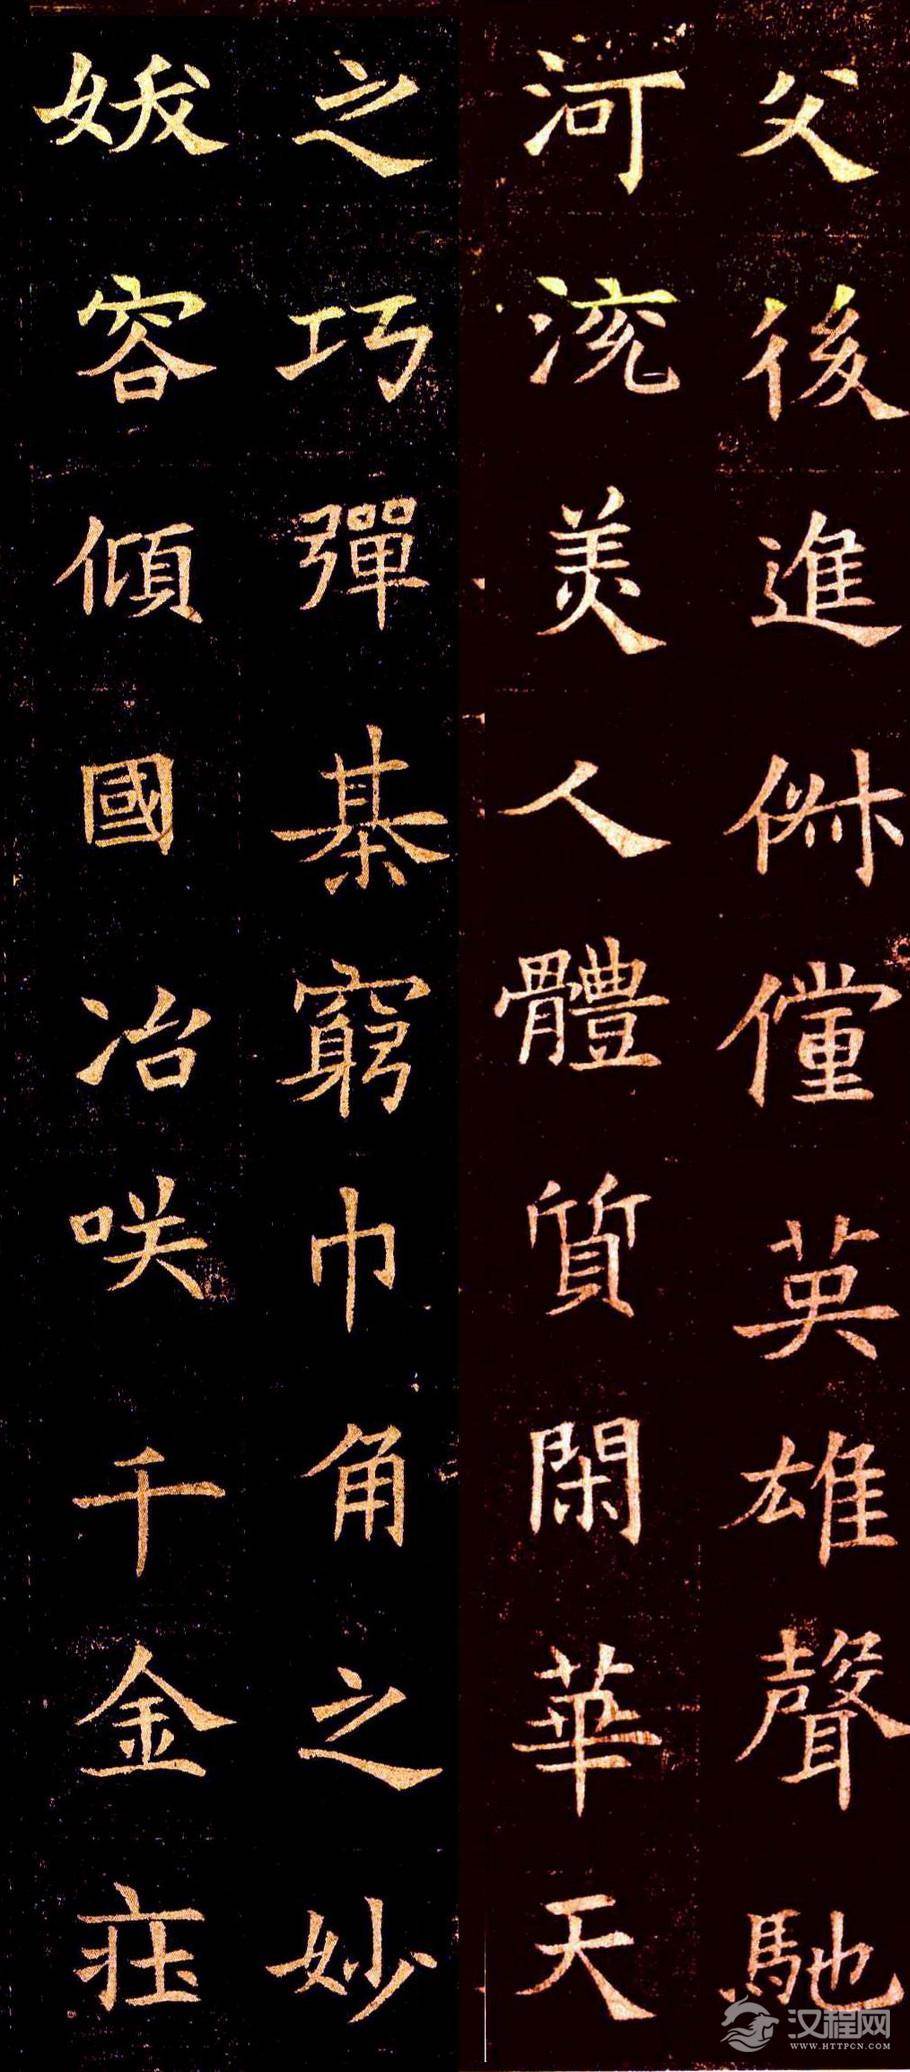 父後進俶儻英雄聲馳
河渷美人體質閑華天
之巧彈棊窮巾角之妙
妖容傾國冶咲千金庄
汉程网
WWW.HTTPCN.COM